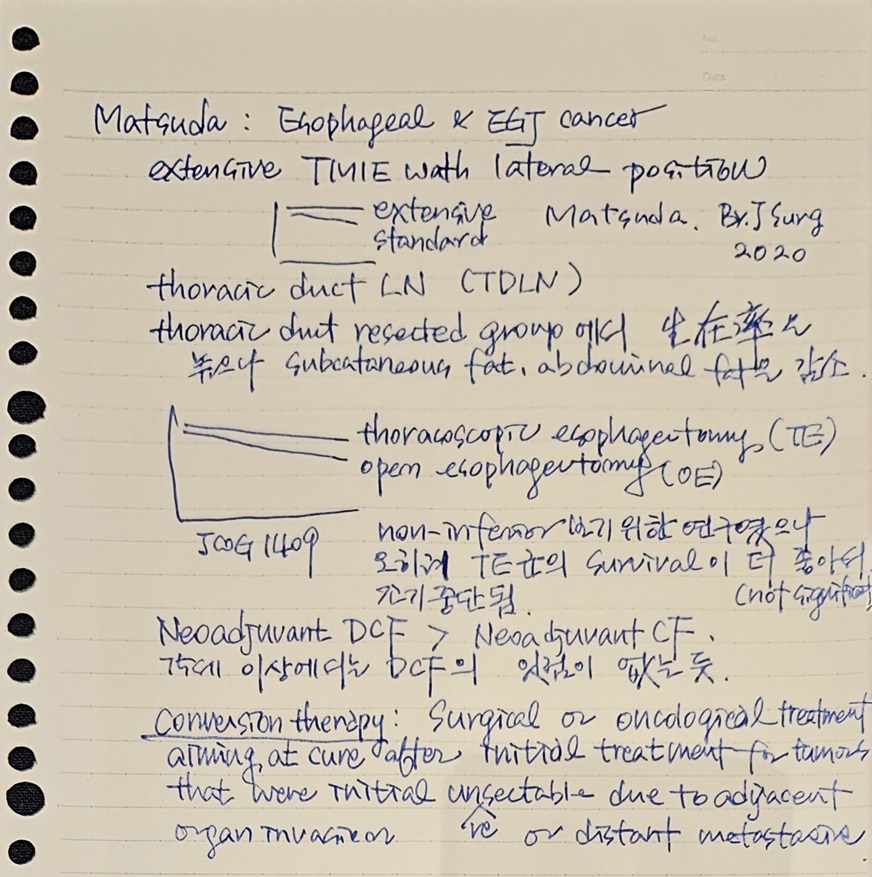 No.
Date
Matsuda : Esophageal & EGJ cancer
extensive TMIE with lateral position
extensive Matsuda. Br.J Surg
standard 2020
thoracic duct LN (TDLN)
thoracic duct resected group에서 生在率은
높으나 subcutaneous fat, abdominal fat은 감소.
thoracoscopic esophagectomy (TE)
open esophagectomy (OE)
JCOG 1409 non-inferior 보기 위한 연구였으나
오히려 TE군의 survival이 더 좋아서
조기중단됨. (not significant)
Neoadjuvant DCF > Neoadjuvant CF.
75세 이상에서는 DCF의 잇점이 없는 듯.
Conversion therapy : Surgical or oncological treatment
aiming at cure after initial treatment for tumors
that were initial unsectable due to adjacent
re
organ invasion or distant metastasis